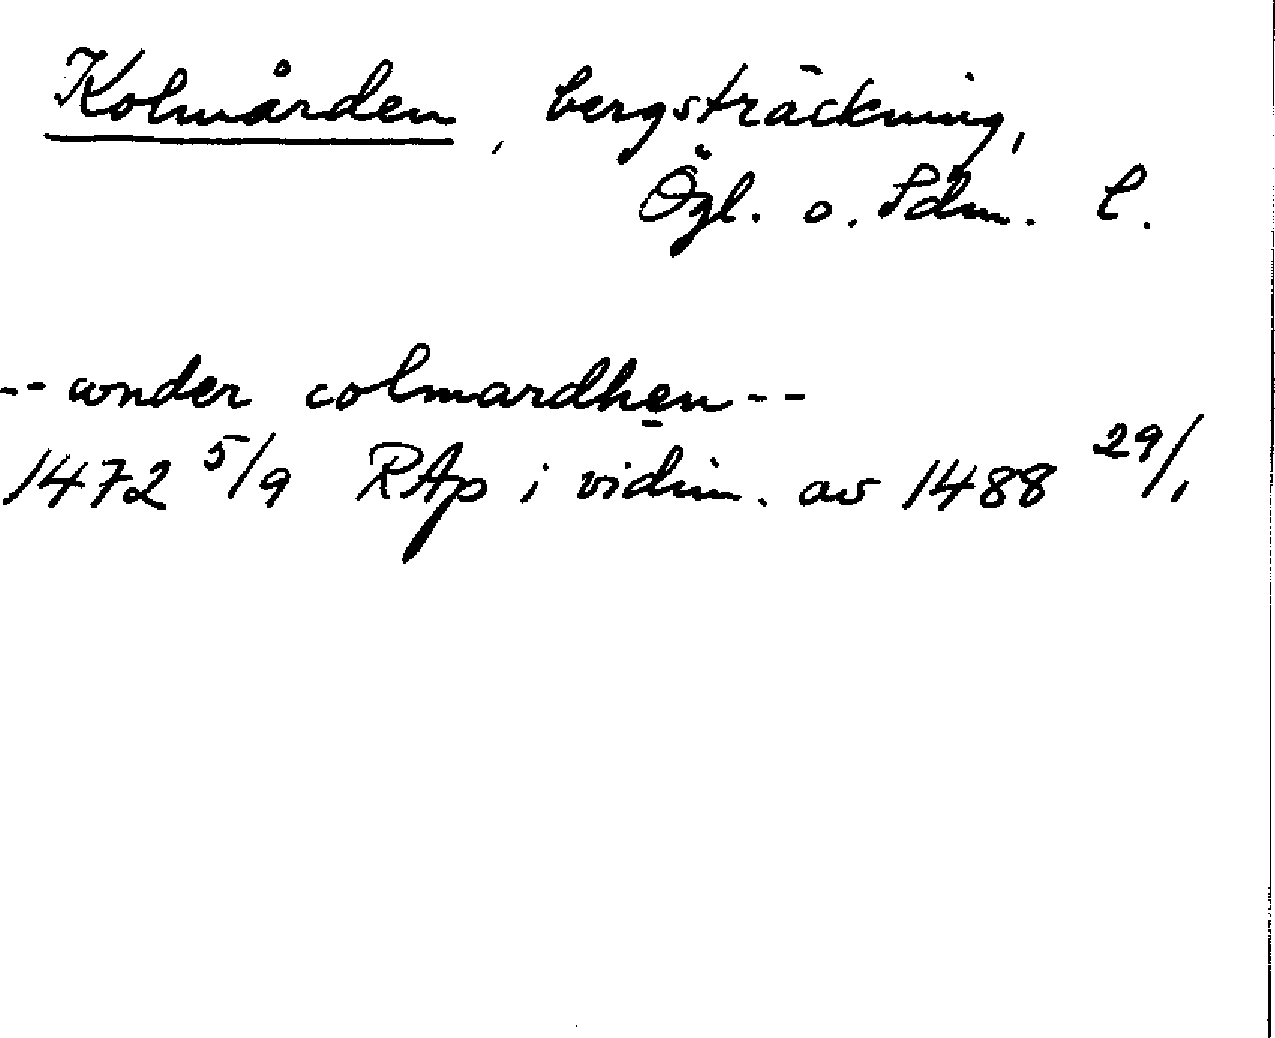 Kolmården, bergsträckning,
Ögl. o. Sdm. l.
-- wnder colmardhen --
1472 5/9 RAp i vidim. av 1488 29/1